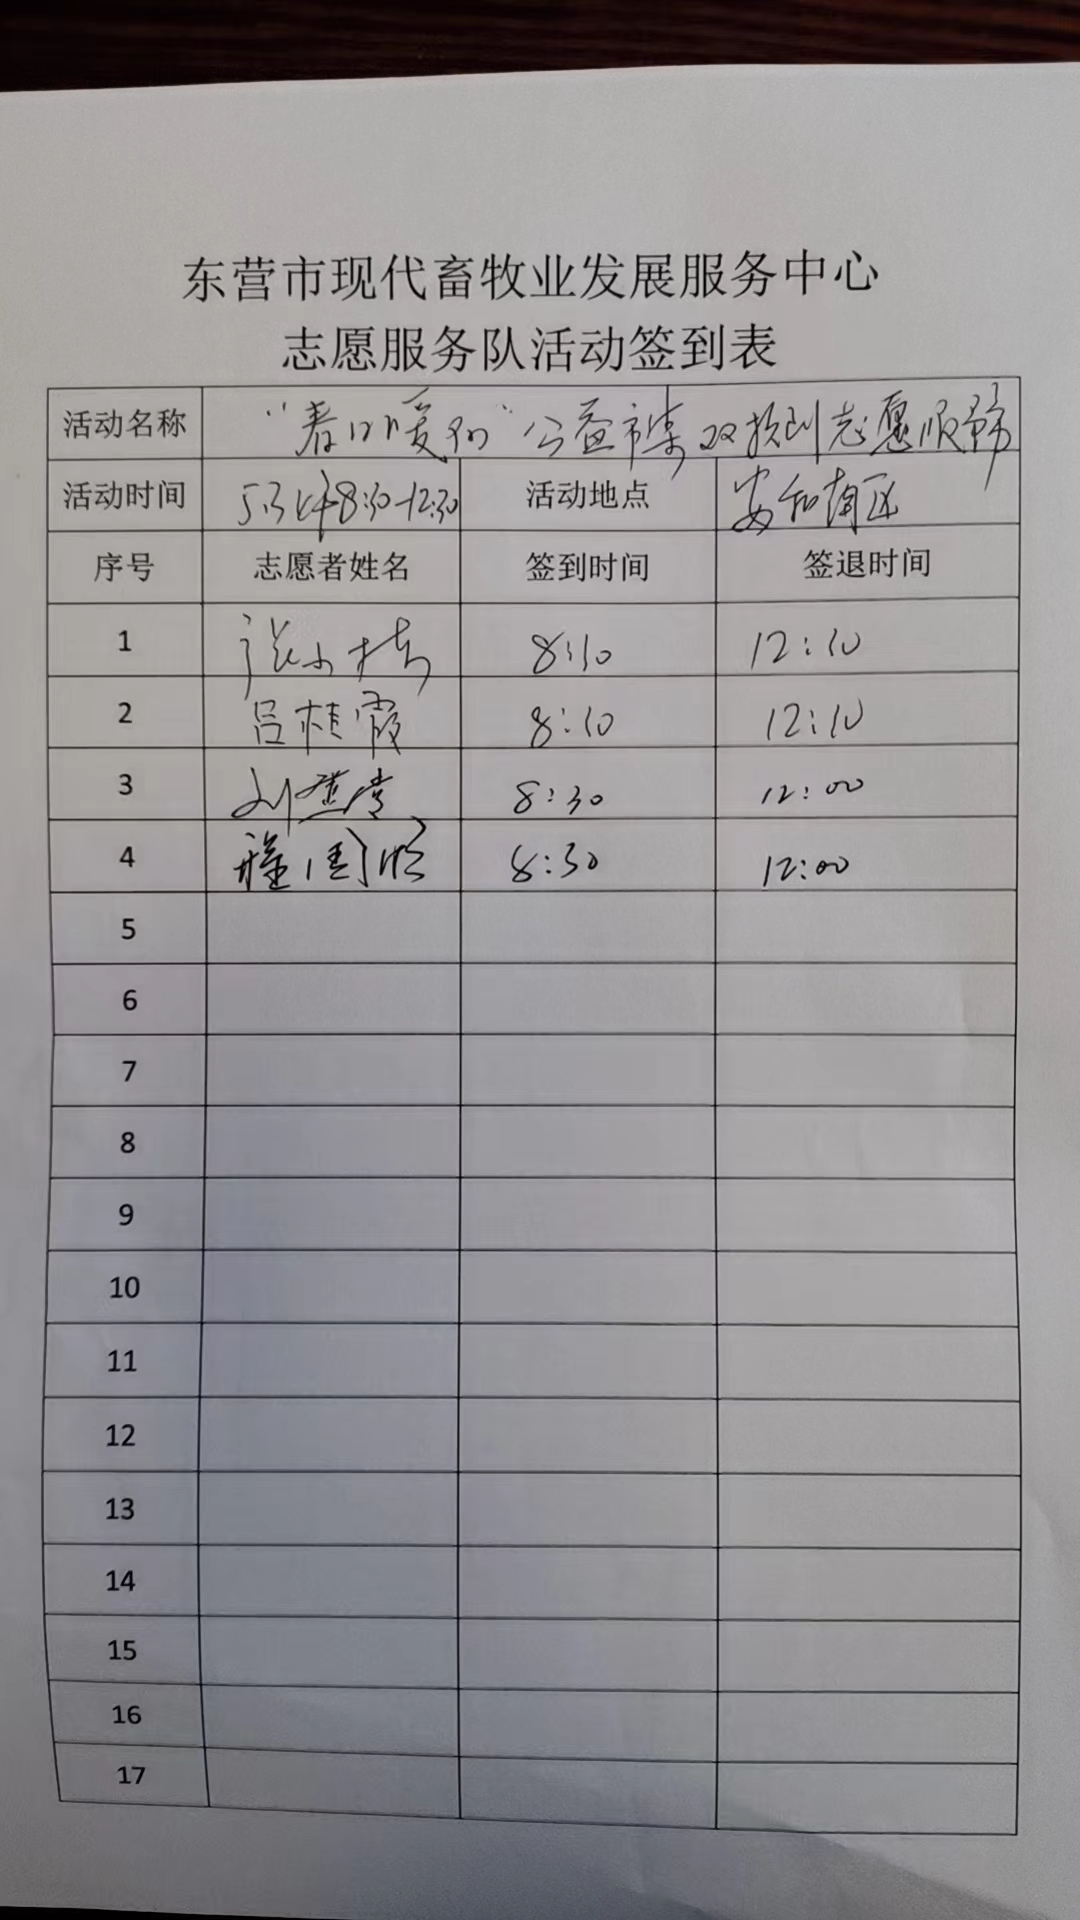 东营市现代畜牧业发展服务中心
志愿服务队活动签到表
活动名称 “春日暖阳”公益市集双报到志愿服务
活动时间 8:30-12:30 活动地点 安和南区
序号 志愿者姓名 签到时间 签退时间
1 张小栋 8:10 12:10
2 吕桂霞 8:10 12:10
3 刘 8:30 12:00
4 8:30 12:00
5
6
7
8
9
10
11
12
13
14
15
16
17